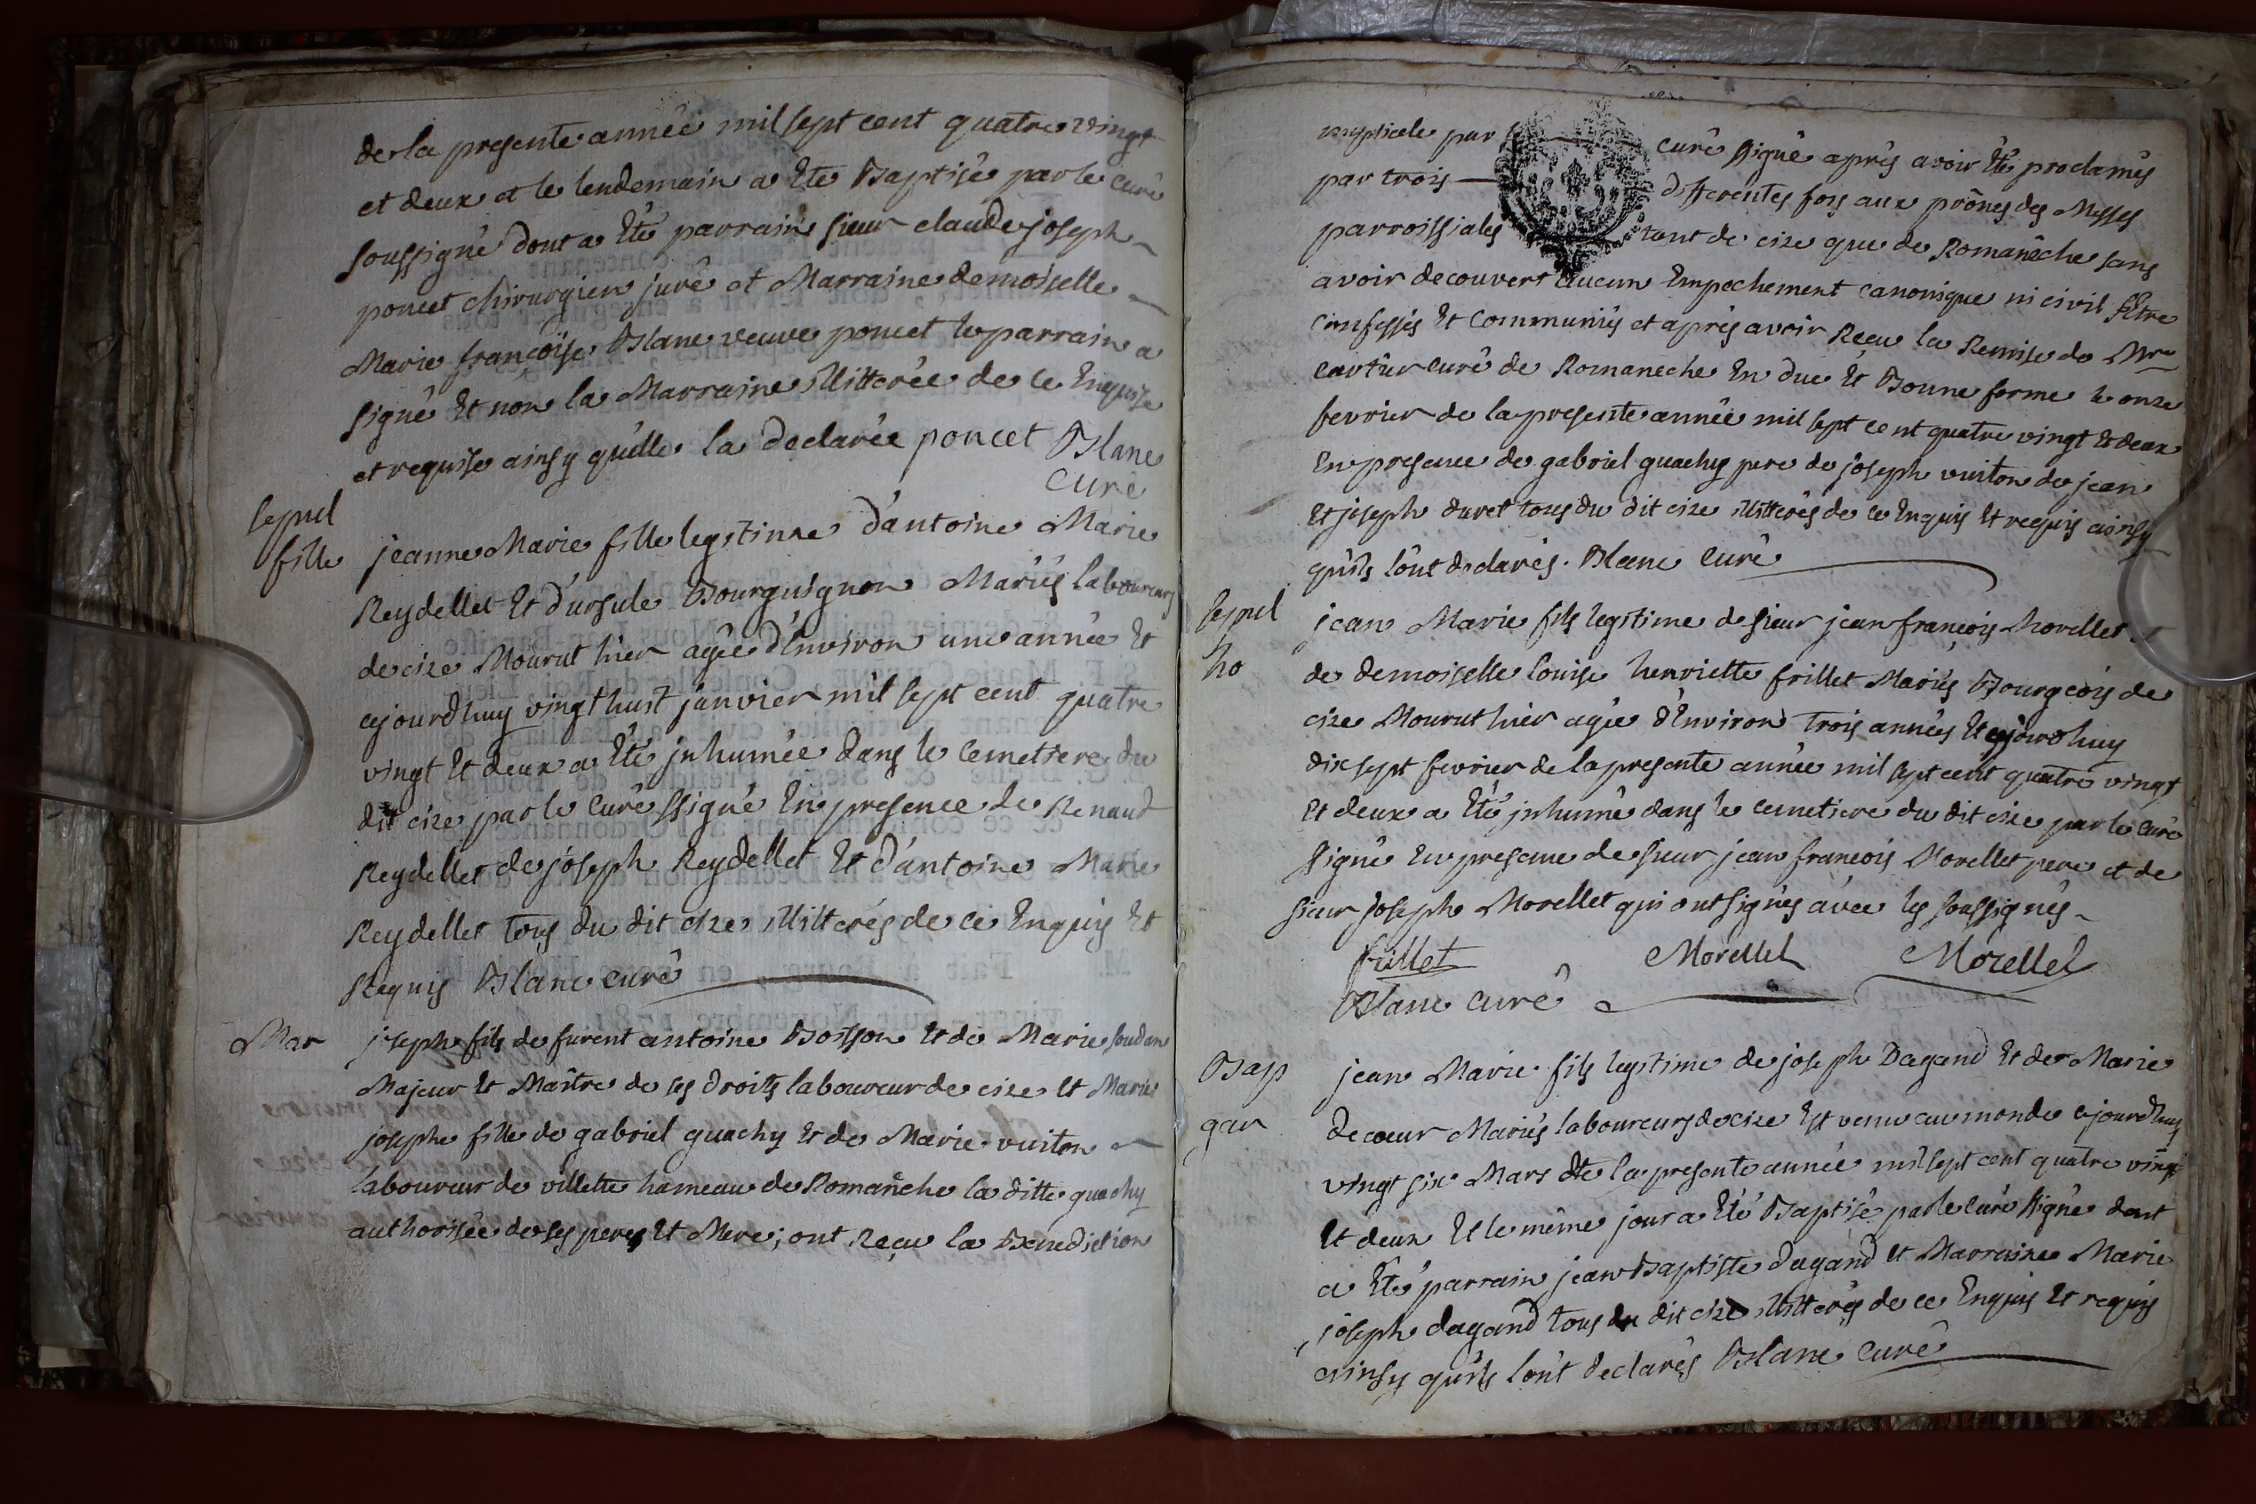 de la presente année mil sept cent quatre vingt
et deux et le lendemain a Eté Baptisé par le curé
soussigné dont a Eté parrain sieur claude joseph
poncet chirurgien juré et Marraine demoiselle
Marie françoise Blanc veuve poncet le parrain a
signé Et non la Marraine illitterée de ce Enquise
et requise ainsy qu'elle la declarée poncet Blanc
curé
sepul
fille
jeanne Marie fille legitime d'antoine Marie
Reydellet Et d'ursule Bourguignon Mariés laboureurs
de cize Mourut hier agée d'Environ une année Et
cejourdhuy vingt huit janvier mil sept cent quatre
vingt Et deux a Eté jnhumée dans le cemetiere du
dit cize par le curé ssigné En presence de Renaud
Reydellet de joseph Reydellet Et d'antoine Marie
Reydellet tous du dit cize illitterés de ce Enquis Et
Requis Blanc curé
Mar
joseph fils de furent antoine Boisson Et de Marie soudan
Majeur Et Maître de ses droits laboureur de cize Et Marie
josephe fille de gabriel guachy Et de Marie vuiton
laboureur de villette hameau de Romanêche la ditte guachy
authorisée de ses peres Et Mere; ont Reçu la Benediction
nuptiale par curé signé aprés avoir Eté proclamés
par trois differentes fois aux prônes des Messes
parroissiales tant de cize que de Romanêche sans
avoir decouvert aucun Empechement canonique ni civil s'Etre
confessés Et Communiés et aprés avoir Reçu la Remise de Mre
curé de Romaneche En due Et Bonne forme le onze
fevrier de la presente année mil sept cent quatre vingt Et deux
En presence de gabriel guachy pere de joseph vuiton de jean
Et joseph duret tous du dit cize illitterés de ce Enquis Et requis ainsy
qu'ils l'ont declarés. Blanc curé
sepul
ho
jean Marie fils legitime de sieur jean francois Morellet Et
de demoiselle louise henriette frillet Mariés Bourgeois de
cize Mourut hier agée d'Environ trois années Et cejourdhuy
dix sept fevrier de la presente année mil sept cent quatre vingt
Et deux a Eté jnhumé dans le cemetiere du dit cize par le curé
signé En presence de sieur jean francois Morellet pere et de
sieur joseph Morellet qui ont signés avec les soussignés
frillet Morellet Morellet
Blanc curé
Bap
gar
jean Marie fils legitime de joseph Dagand Et de Marie
decoeur Mariés laboureurs de cize Est venu au monde cejourdhuy
vingt six Mars de la presente année mil sept cent quatre vingt
Et deux Et le même jour a Eté Baptisé par le curé signé dont
a Eté parrain jean Baptiste dagand et Marraine Marie
joseph dagand tous du dit cize illitterés de ce Enquis Et requis
ainsy qu'ils l'ont declarés Blanc curé